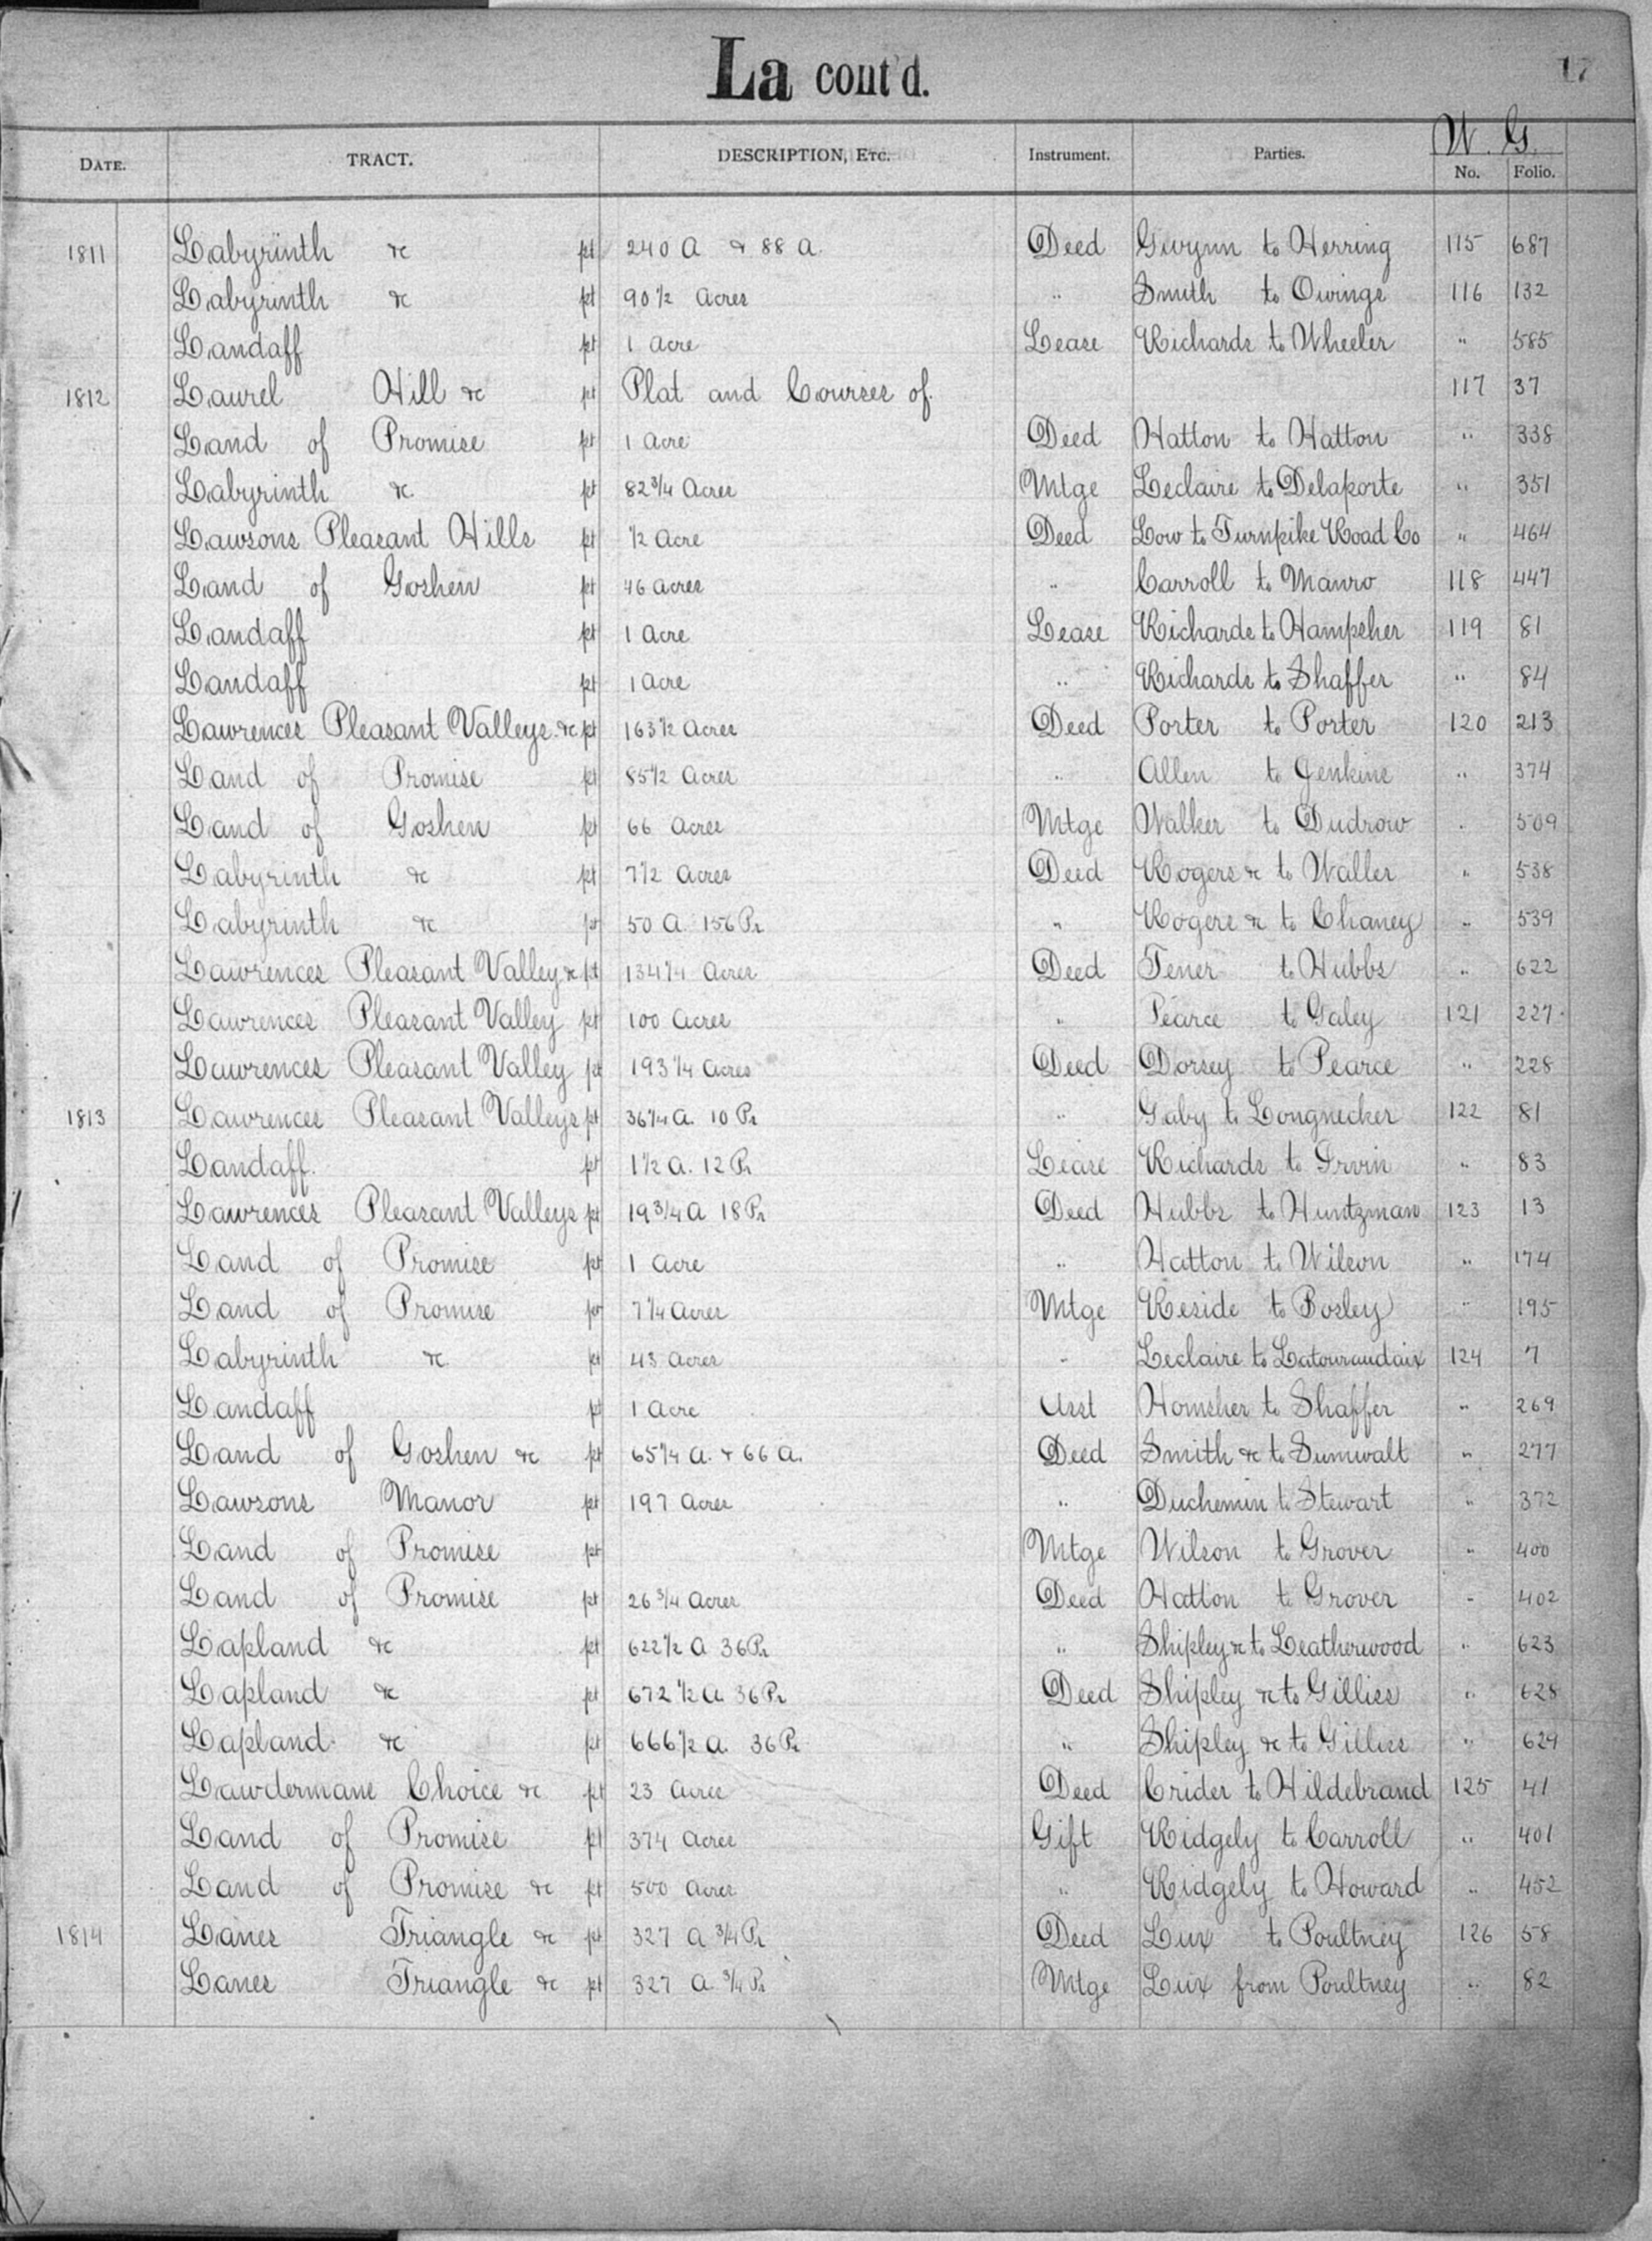 La cont'd.
17
W. G.
DATE. TRACT. DESCRIPTION, ETC. Instrument. Parties. No. Folio.
1811 Labyrinth &c pt 240 A & 88 A. Deed Gwynn to Herring 115 687
Labyrinth &c pt 90 1/2 Acres " Smith to Owings 116 132
Landaff pt 1 Acre Lease Richards to Wheeler " 585
1812 Laurel Hill &c pt Plat and Courses of 117 37
Land of Promise pt 1 Acre Deed Hatton to Hatton " 338
Labyrinth &c pt 82 3/4 Acres Mtge Leclaire to Delaporte " 351
Lawsons Pleasant Hills pt 1/2 Acre Deed Low to Turnpike Road Co " 464
Land of Goshen pt 46 Acres " Carroll to Manro 118 447
Landaff pt 1 Acre Lease Richards to Hampsher 119 81
Landaff pt 1 Acre " Richards to Shaffer " 84
Lawrences Pleasant Valleys &c pt 163 1/2 Acres Deed Porter to Porter 120 213
Land of Promise pt 85 1/2 Acres " Allen to Jenkins " 374
Land of Goshen pt 66 Acres Mtge Walker to Dudrow " 509
Labyrinth &c pt 7 1/2 Acres Deed Rogers &c to Waller " 538
Labyrinth &c pt 50 A. 156 Pr " Rogers &c to Chaney " 539
Lawrences Pleasant Valley &c pt 134 1/4 Acres Deed Tener to Hubbs " 622
Lawrences Pleasant Valley pt 100 Acres " Pearce to Galey 121 227
Lawrences Pleasant Valley pt 193 1/4 Acres Deed Dorsey to Pearce " 228
1813 Lawrences Pleasant Valleys pt 36 1/4 A. 10 Pr " Gaby to Longnecker 122 81
Landaff pt 1 1/2 A. 12 Pr Lease Richards to Irvin " 83
Lawrences Pleasant Valleys pt 19 3/4 A 18 Pr Deed Hubbs to Huntzman 123 13
Land of Promise pt 1 Acre " Hatton to Wilson " 174
Land of Promise pt 7 1/4 Acres Mtge Reside to Bosley " 195
Labyrinth &c pt 43 Acres " Leclaire to Latouraudaix 124 7
Landaff pt 1 Acre Asst Homsher to Shaffer " 269
Land of Goshen &c pt 65 1/4 A. & 66 A. Deed Smith &c to Sumwalt " 277
Lawsons Manor pt 197 Acres " Duchemin to Stewart " 372
Land of Promise pt Mtge Wilson to Grover " 400
Land of Promise pt 26 3/4 Acres Deed Hatton to Grover " 402
Lapland &c pt 622 1/2 A 36 Pr " Shipley &c to Leatherwood " 623
Lapland &c pt 672 1/2 A. 36 Pr Deed Shipley &c to Gilliss " 628
Lapland &c pt 666 1/2 A. 36 Pr " Shipley &c to Gilliss " 629
Lawdermans Choice &c pt 23 Acres Deed Crider to Hildebrand 125 41
Land of Promise pt 374 Acres Gift Ridgely to Carroll " 401
Land of Promise &c pt 500 Acres " Ridgely to Howard " 452
1814 Lanes Triangle &c pt 327 A 3/4 Pr Deed Lux to Poultney 126 58
Lanes Triangle &c pt 327 A. 3/4 Pr Mtge Lux from Poultney " 82